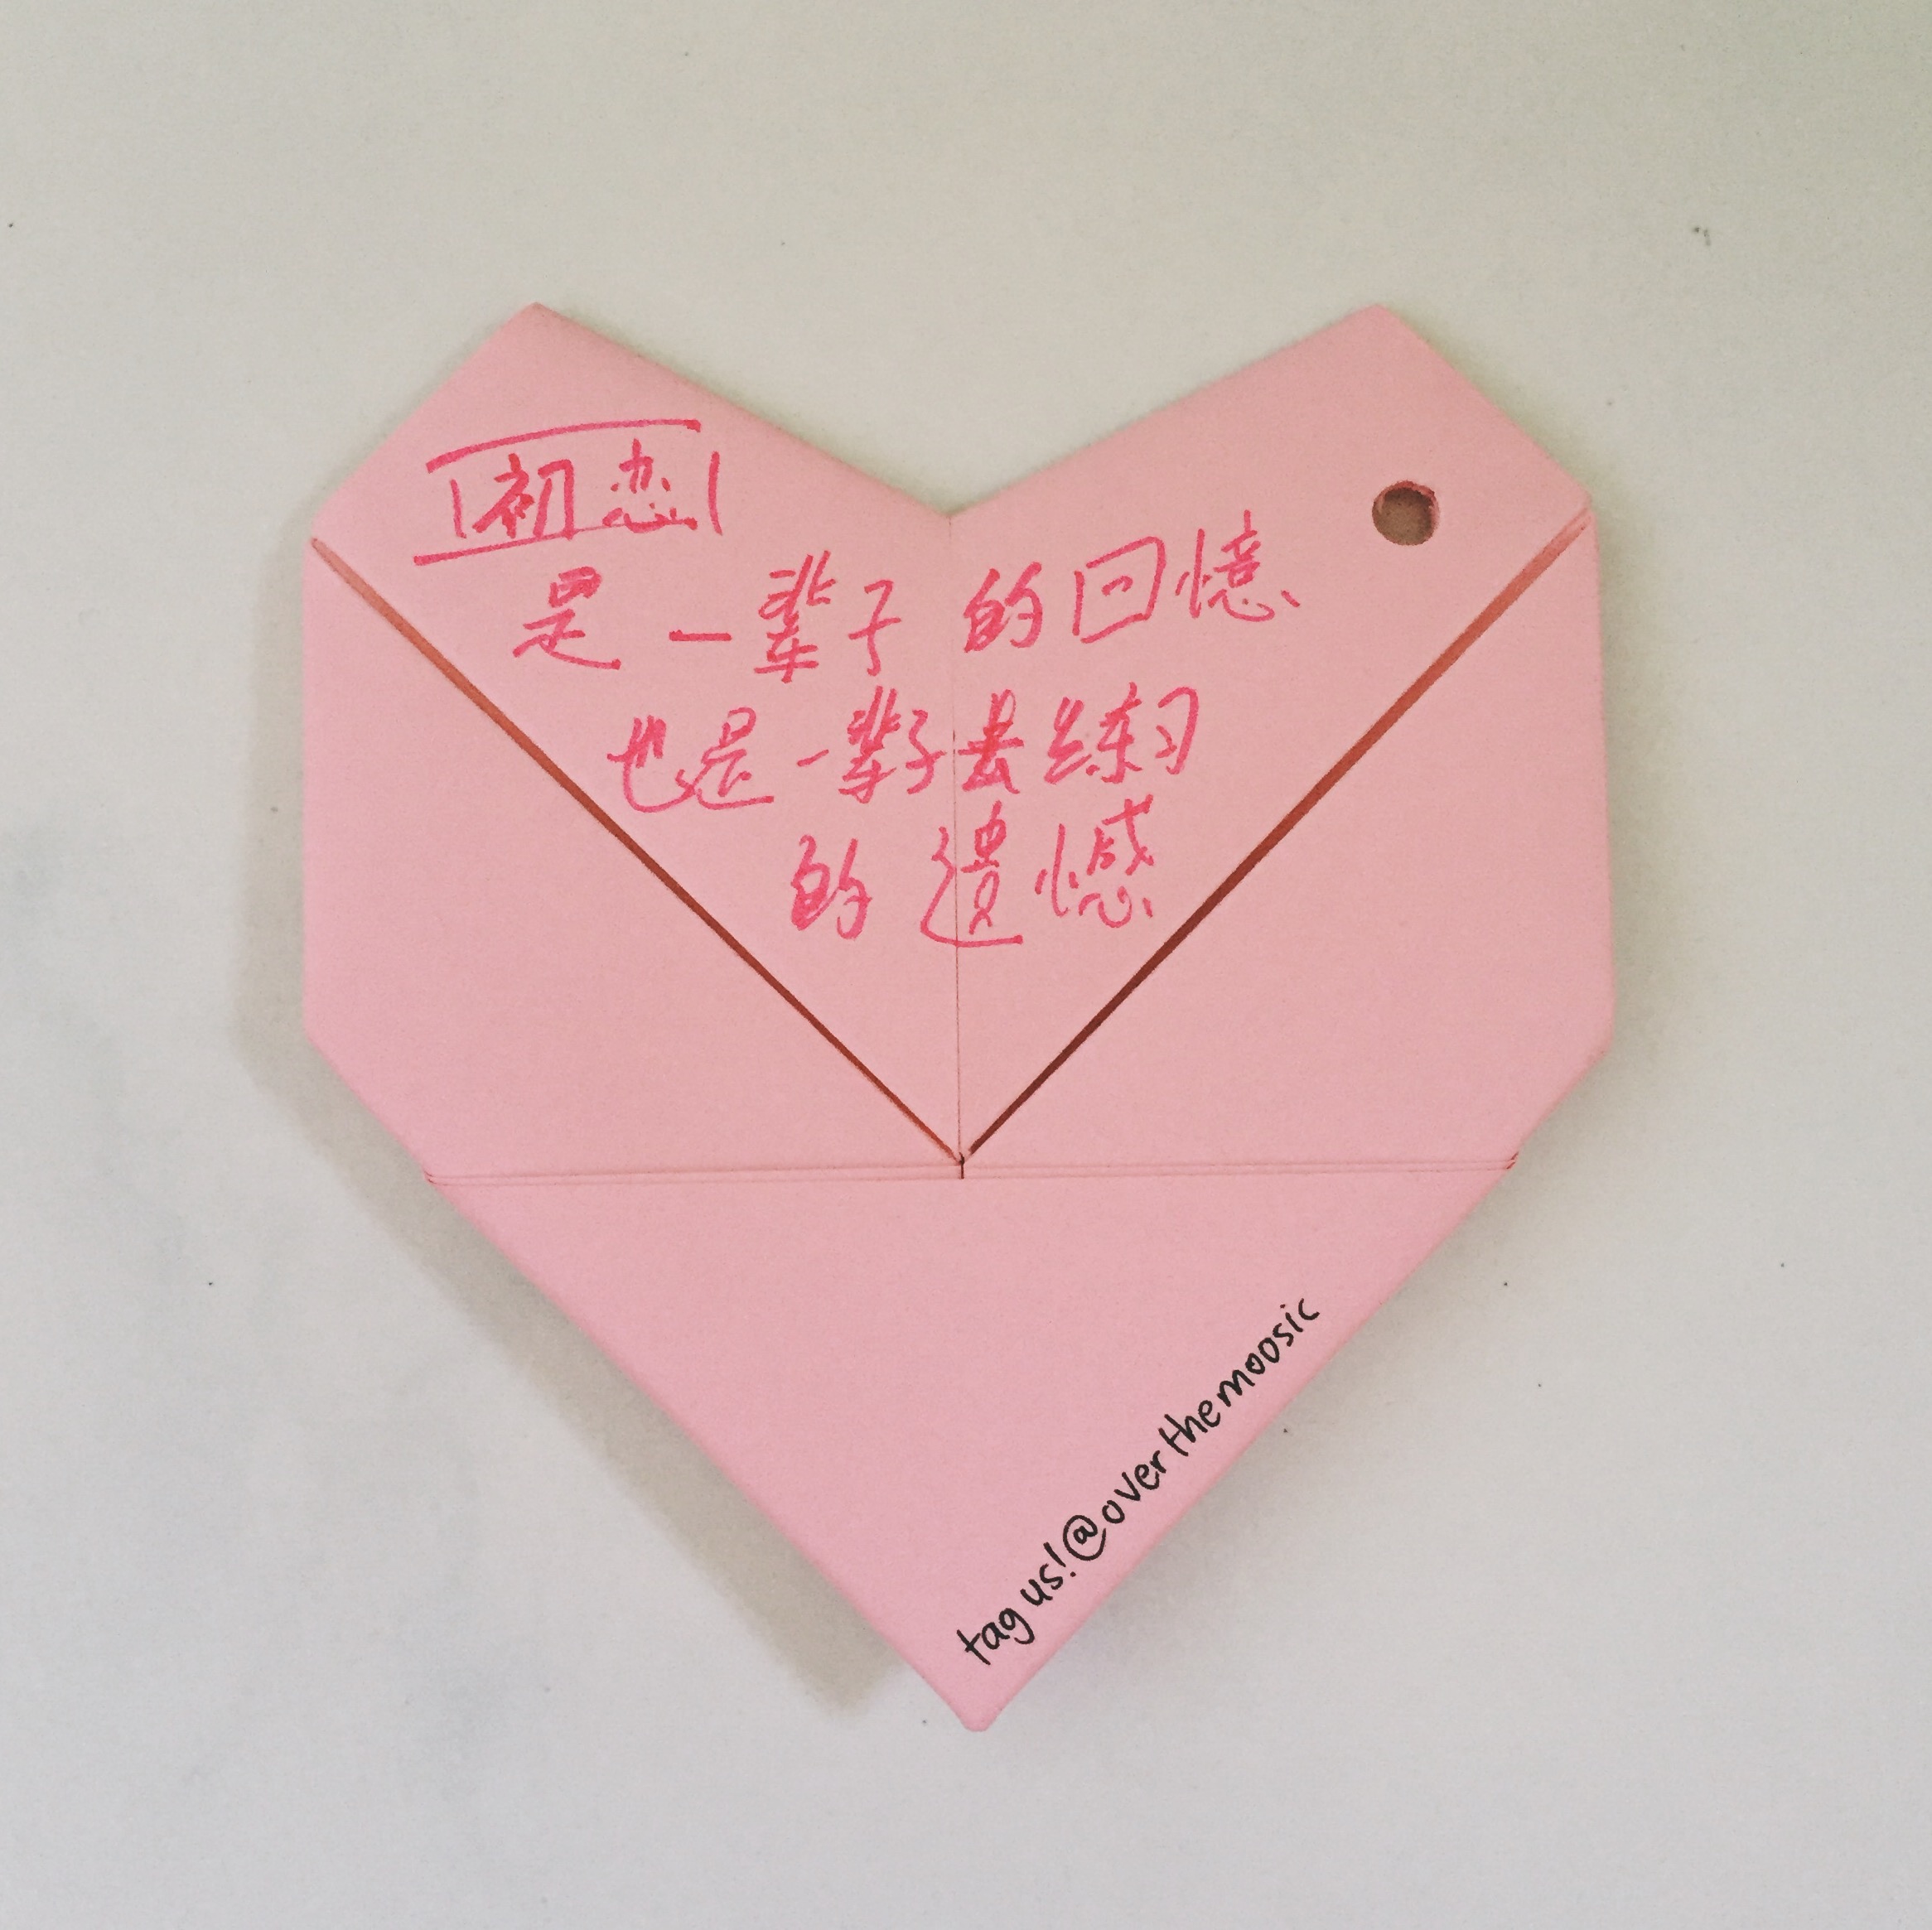 初恋
是一辈子的回憶
也是一辈子去练习
的遗憾
tag us!@overthemoosic